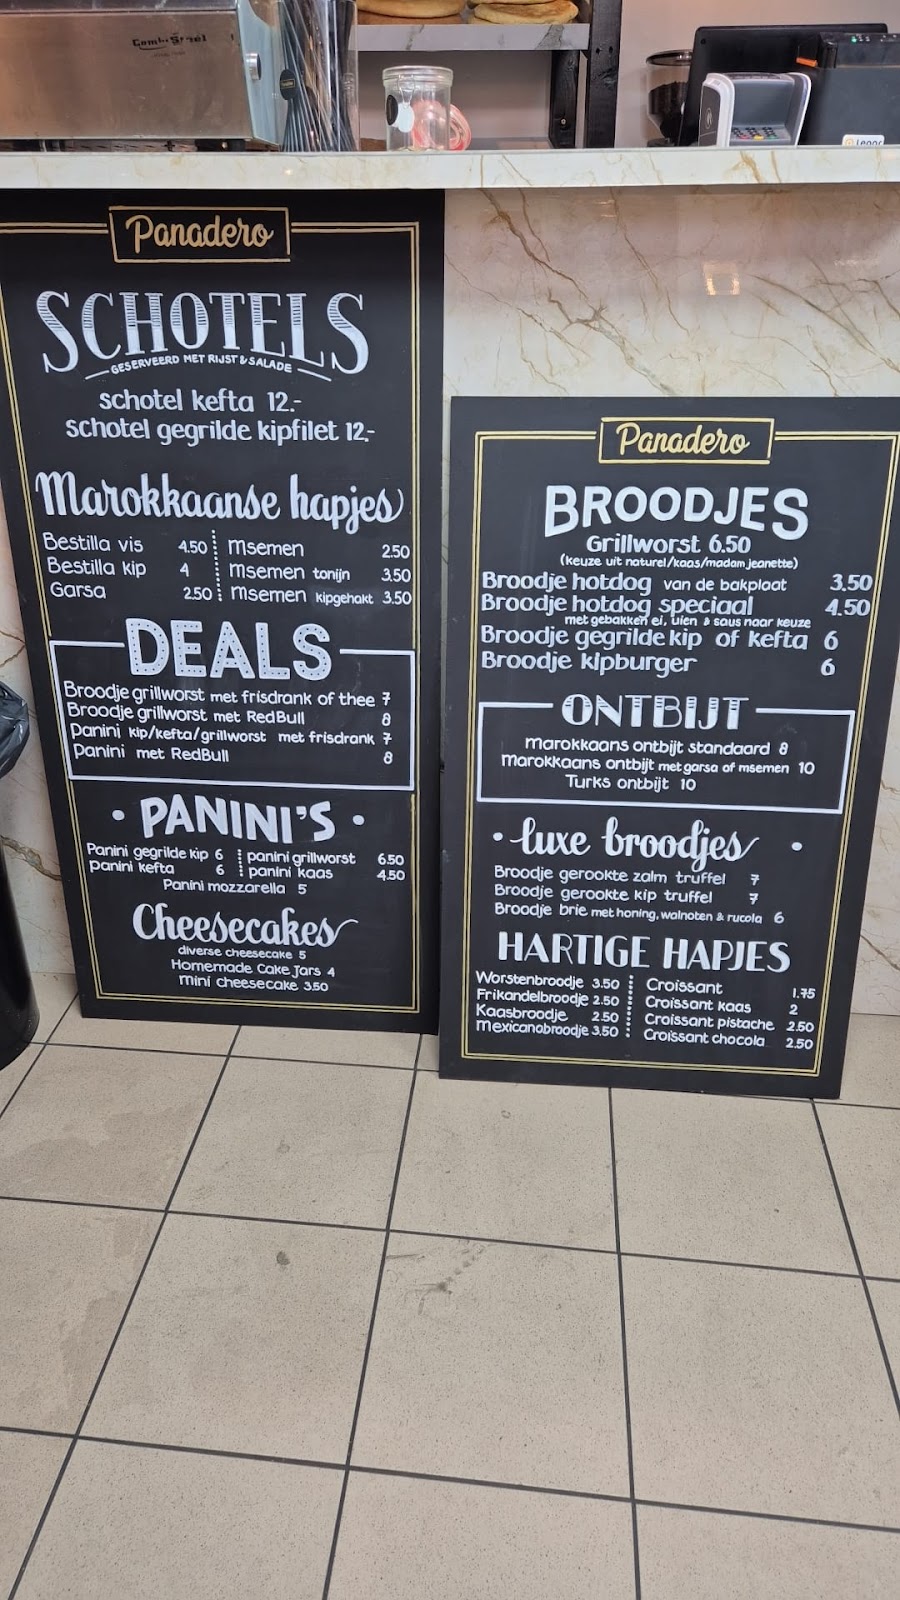 Combi Steel
Panadero
SCHOTELS
GESERVEERD MET RIJST & SALADE
schotel kefta 12.-
schotel gegrilde kipfilet 12.-
Marokkaanse hapjes
Bestilla vis 4.50
Bestilla kip 4
Garsa 2.50
Msemen 2.50
Msemen tonijn 3.50
Msemen kipgehakt 3.50
DEALS
Broodje grillworst met frisdrank of thee 7
Broodje grillworst met RedBull 8
Panini kip/kefta/grillworst met frisdrank 7
Panini met RedBull 8
• PANINI'S •
Panini gegrilde kip 6
Panini kefta 6
panini grillworst 6.50
panini kaas 4.50
Panini mozzarella 5
Cheesecakes
diverse cheesecake 5
Homemade Cake Jars 4
mini cheesecake 3.50
Panadero
BROODJES
Grillworst 6.50
(keuze uit naturel/kaas/madam jeanette)
Broodje hotdog van de bakplaat 3.50
Broodje hotdog speciaal 4.50
met gebakken ei, uien & saus naar keuze
Broodje gegrilde kip of kefta 6
Broodje kipburger 6
ONTBIJT
Marokkaans ontbijt standaard 8
Marokkaans ontbijt met garsa of msemen 10
Turks ontbijt 10
• luxe broodjes •
Broodje gerookte zalm truffel 7
Broodje gerookte kip truffel 7
Broodje brie met honing, walnoten & rucola 6
HARTIGE HAPJES
Worstenbroodje 3.50
Frikandelbroodje 2.50
Kaasbroodje 2.50
Mexicanobroodje 3.50
Croissant 1.75
Croissant kaas 2
Croissant pistache 2.50
Croissant chocola 2.50